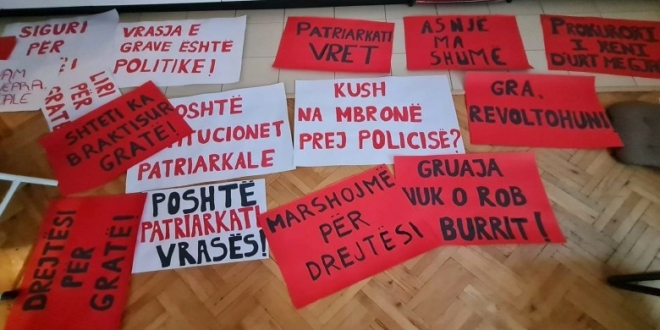 SIGURI
PËR
VRASJA E
GRAVE ËSHTË
POLITIKE!
PATRIARKATI
VRET
ASNJË
MA
SHUMË
PROKURORI
I XENI
D'URT ME GJIRE
LIRI
PËR
GRATË
SHTETI KA
BRAKTISUR
GRATË!
POSHTË
INSTITUCIONET
PATRIARKALE
KUSH
NA MBRONË
PREJ POLICISË?
GRA,
REVOLTOHUNI
DREJTËSI
PËR
GRATË!
POSHTË
PATRIARKATI
VRASËS!
MARSHOJMË
PËR
DREJTËSI
GRUAJA
VUK O ROB
BURRIT!